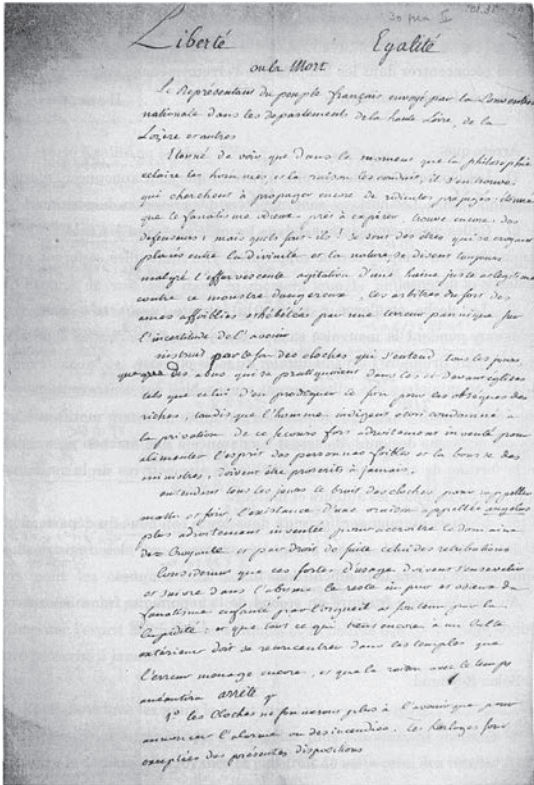 30 pra I
Liberté Egalité
ou la Mort
Le Représentant du peuple français envoyé par la Convention
nationale dans les departements de la haute Loire, de la
Lozere et autres
Etonné de voir que dans le moment que la philosophie
eclaire les hommes, et la raison les conduit, il s'en trouve
qui cherchent à propager encore de ridicules préjugés; étonné
que le fanatisme odieux prêt à expirer, trouve encore des
defenseurs; mais quels sont-ils! Ce sont des êtres qui se croyant
placés entre la divinité et la nature, se disent toujours
malgré l'effervescente agitation d'une haine juste et légitime
contre ce monstre dangereux, les arbitres du sort des
ames affoiblies et hébétées par une terreur pannique sur
l'incertitude de l'avenir
instruit par le son des cloches qui s'entend tous les jours,
que des abus qui se pratiquoient dans les ci devant églises
tels que celui d'en prodiguer le son pour les obseques des
riches, tandis que l'homme indigent étoit condamné à
la privation de ce secours fort adroitement inventé pour
alimenter l'esprit des personnes foibles et la bourse des
ministres, doivent être proscrits à jamais.
entendant tous les jours le bruit des cloches pour rappeller
matin et soir, l'existance d'une oraison appellée angelus
plus adroitement inventée pour accroitre le domaine
de la Croyance et par droit de suite celui des retributions
Considerant que ces sortes d'usage doivent s'ensevelir
et suivre dans l'abisme le reste impur et odieux du
fanatisme enfanté par l'orgueil et soutenu par la
Cupidité; et que tout ce qui tient encore à un Culte
extérieur doit se reconcentrer dans les temples que
l'erreur menage encore, et que la raison avec le temps
anéantira arrête q
1° les Cloches ne sonneront plus à l'avenir que pour
annoncer l'alarme ou des incendies. Les horloges sont
exceptées des présentes dispositions